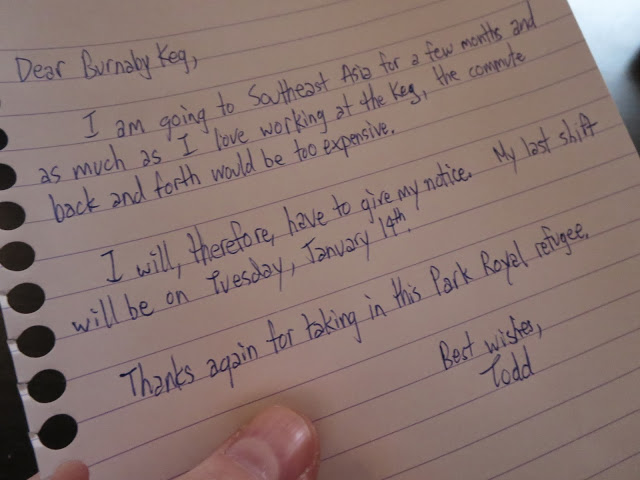 Dear Burnaby Keg,
I am going to Southeast Asia for a few months and
as much as I love working at the Keg, the commute
back and forth would be too expensive.
I will, therefore, have to give my notice. My last shift
will be on Tuesday, January 14th.
Thanks again for taking in this Park Royal refugee.
Best wishes,
Todd